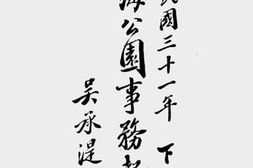 民國三十一年 下
海公園事務
吳承湜